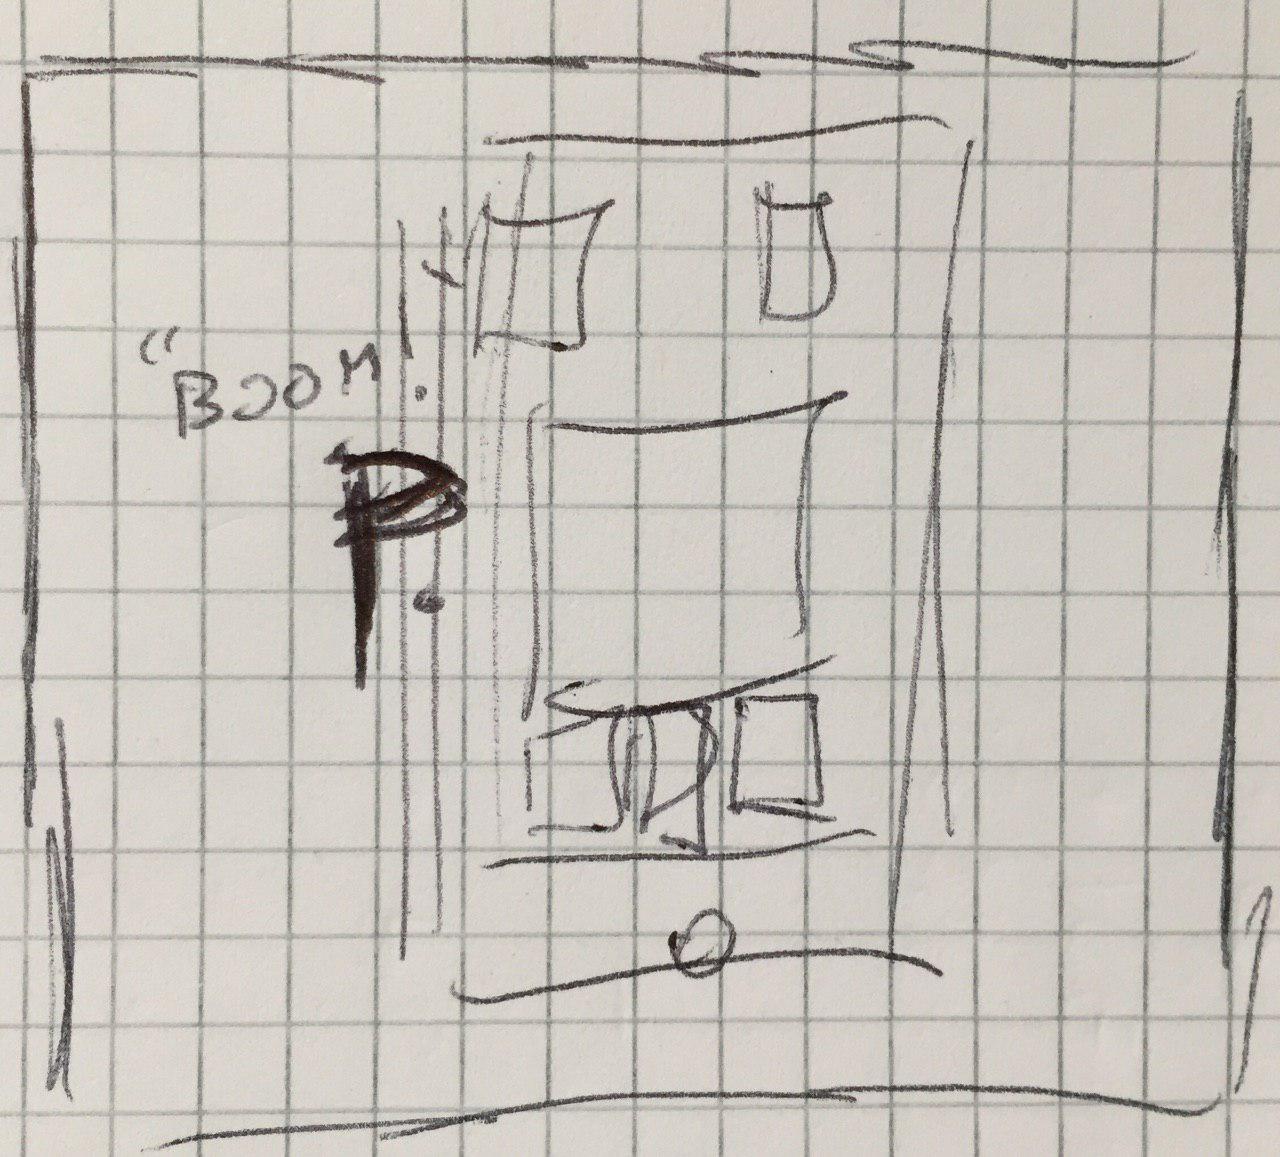 "BOOM.
P.